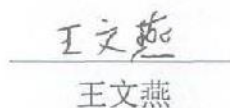 王文燕
王文燕